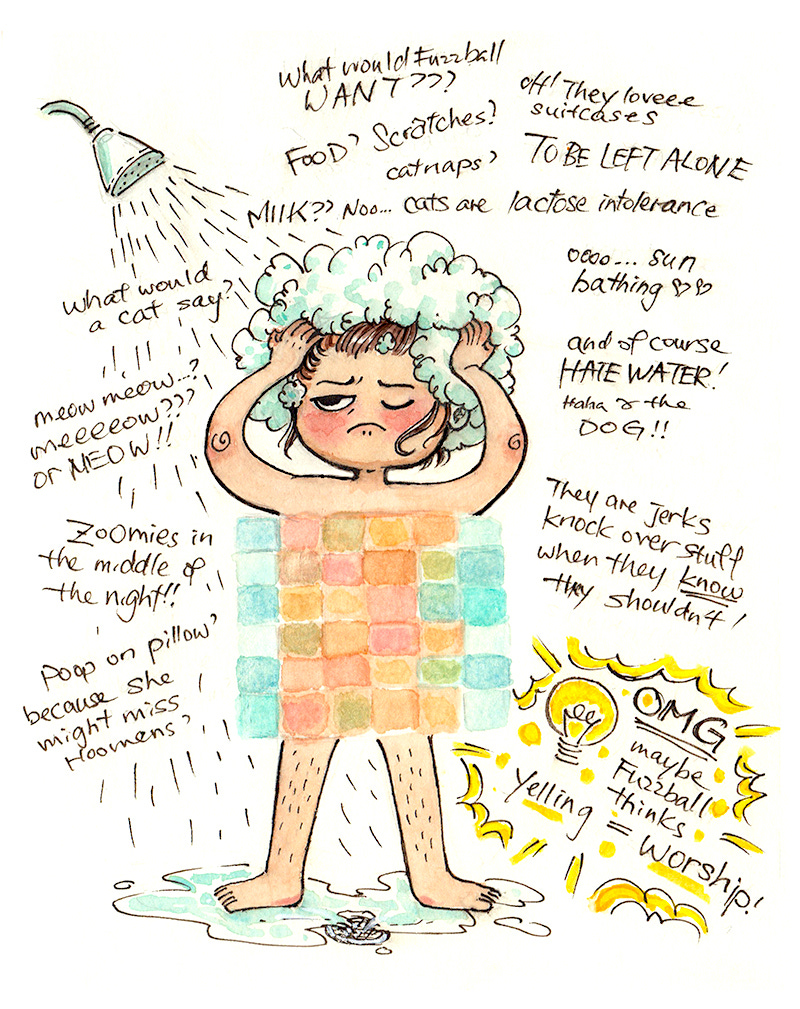 What would Fuzzball
WANT???
Food? Scratches?
catnaps?
MILK?? Noo... cats are lactose intolerance
oh! They loveee
suitcases
TO BE LEFT ALONE
oooo... sun
bathing ♡♡
and of course
HATE WATER!
Haha & the
DOG!!
They are jerks
knock over stuff
when they know
they shouldn't!
What would
a cat say?
meow meow...?
meeeeow???
or MEOW!!
Zoomies in
the middle of
the night!!
Poop on pillow?
because she
might miss
Hoomens?
OMG
maybe
Fuzzball
thinks
Yelling = Worship!